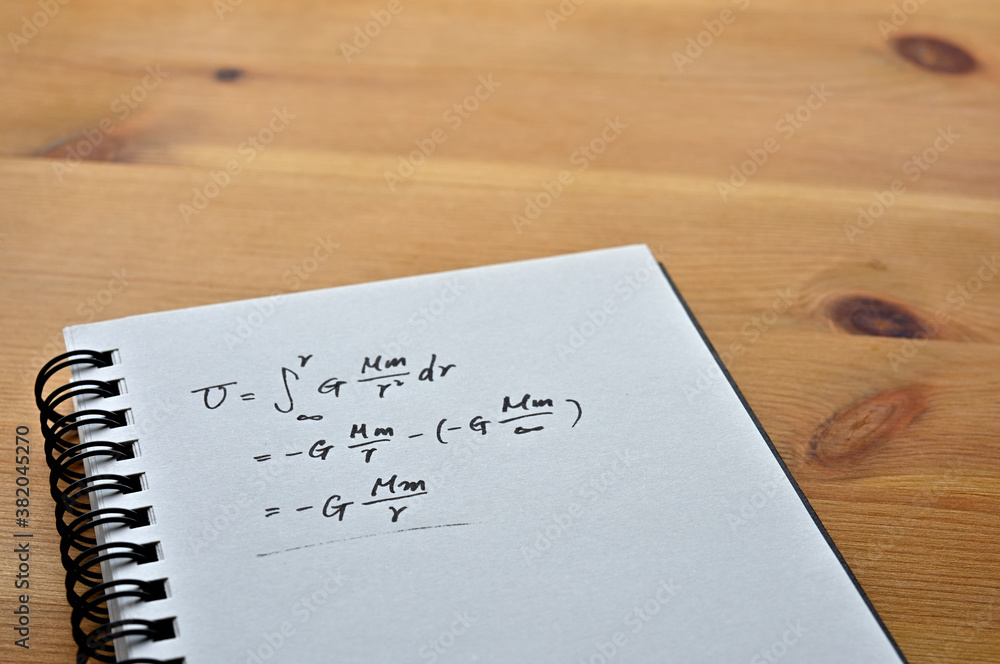 U = ∫∞^r G Mm/r² dr
= - G Mm/r - (- G Mm/∞)
= - G Mm/r
Adobe Stock | #382045270